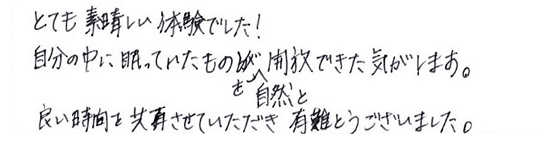 とても素晴しい体験でした!
自分の中に眠っていたものを自然と開放できた気がします。
良い時間を共有させていただき有難とうございました。